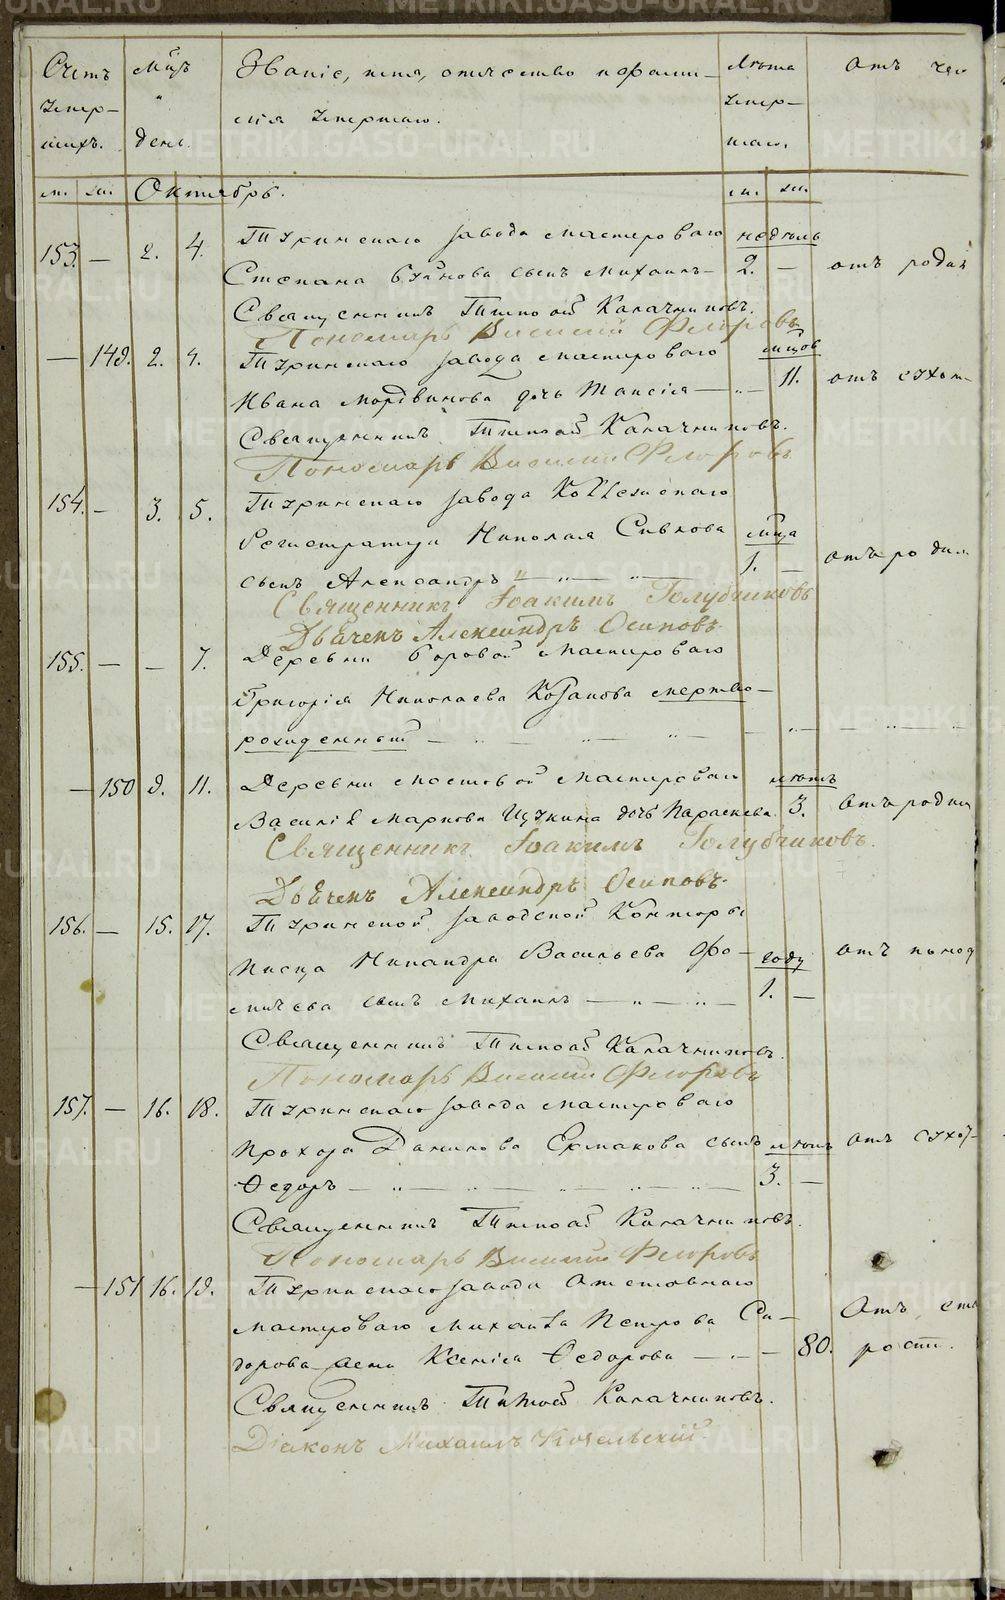 Счетъ умер- шихъ.
Мѣцъ и день.
Званіе, имя, отчество и фами-
лія умершаго.
Лѣта умер- шаго.
Отъ чего
м. ж. Октябрь. м. ж.
153. — 2. 4. Туринскаго завода мастероваго недѣль
Степана сынъ Михаилъ — 2. — отъ родим
Священникъ Тимофей Калачниковъ.
Пономарь Василий Флоровъ
— 149. 2. 4. Туринскаго завода мастероваго мѣцов
Ивана Мордвинова дочь Таисія — „ — 11. отъ сухот-
Священникъ Тимофей Калачниковъ.
Пономарь Василий Флоровъ
154. — 3. 5. Туринскаго завода Коллежскаго
Регистратора Николая Сивкова мѣца
сынъ Александръ „ — „ — 1. — отъ родим
Священникъ Іоакимъ Голубчиковъ
Дьячекъ Александръ Осиповъ.
155. — — 7. Деревни Боровой мастероваго
Григорія Николаева мертво-
рожденный — „ — „ — „ —
— 150 9. 11. Деревни Мостовой мастероваго лѣтъ
Василія Маркова дочь Параскева. 3. отъ родим
Священникъ Іоакимъ Голубчиковъ.
Дьячекъ Александръ Осиповъ.
156. — 15. 17. Туринской заводской Конторы
писца Никандра Васильева Фо- году отъ
мичева сынъ Михаилъ — „ — „ — 1. —
Священникъ Тимофей Калачниковъ.
Пономарь Василий Флоровъ
157. — 16. 18. Туринскаго завода мастероваго
Прохора Данилова Ермакова сынъ лѣтъ отъ сухот-
Ѳедоръ — „ — „ — „ — 3. —
Священникъ Тимофей Калачниковъ.
Пономарь Василий Флоровъ
— 151 16. 19. Туринскаго завода отставнаго
мастероваго Михаила Петрова Си-
дорова жена Ксенія Ѳедорова — „ — 80. Отъ ста
рости.
Священникъ Тимофей Калачниковъ.
Діаконъ Михаилъ
METRIKI.GASO-URAL.RU